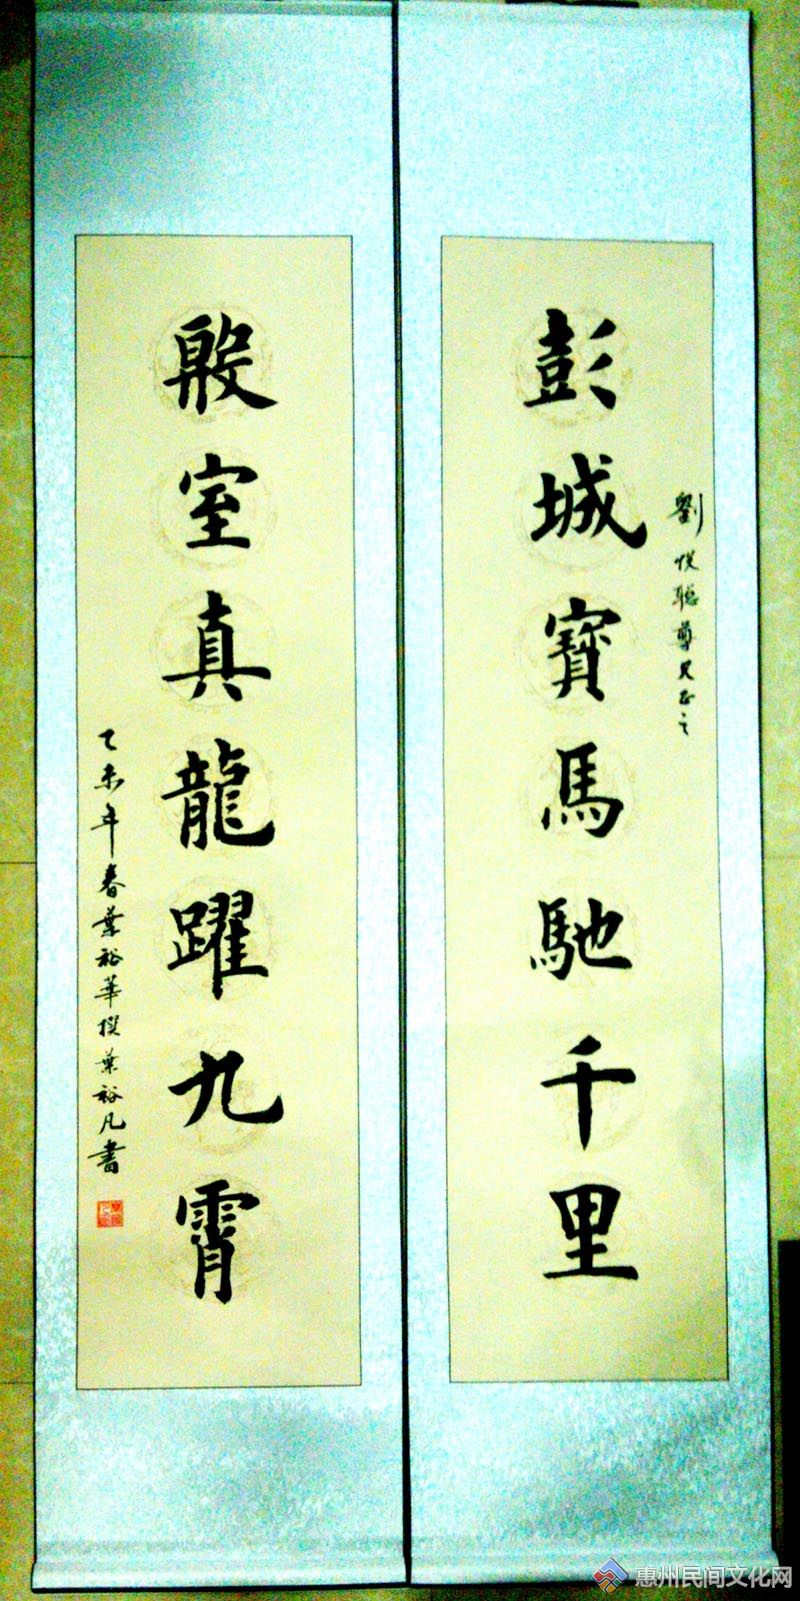 劉悅聰尊兄正之
彭城寶馬馳千里
殷室真龍躍九霄
乙未年春葉裕華撰葉裕凡書
惠州民间文化网